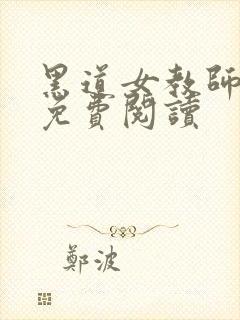 黑道女教師
免費閱讀
鄭波